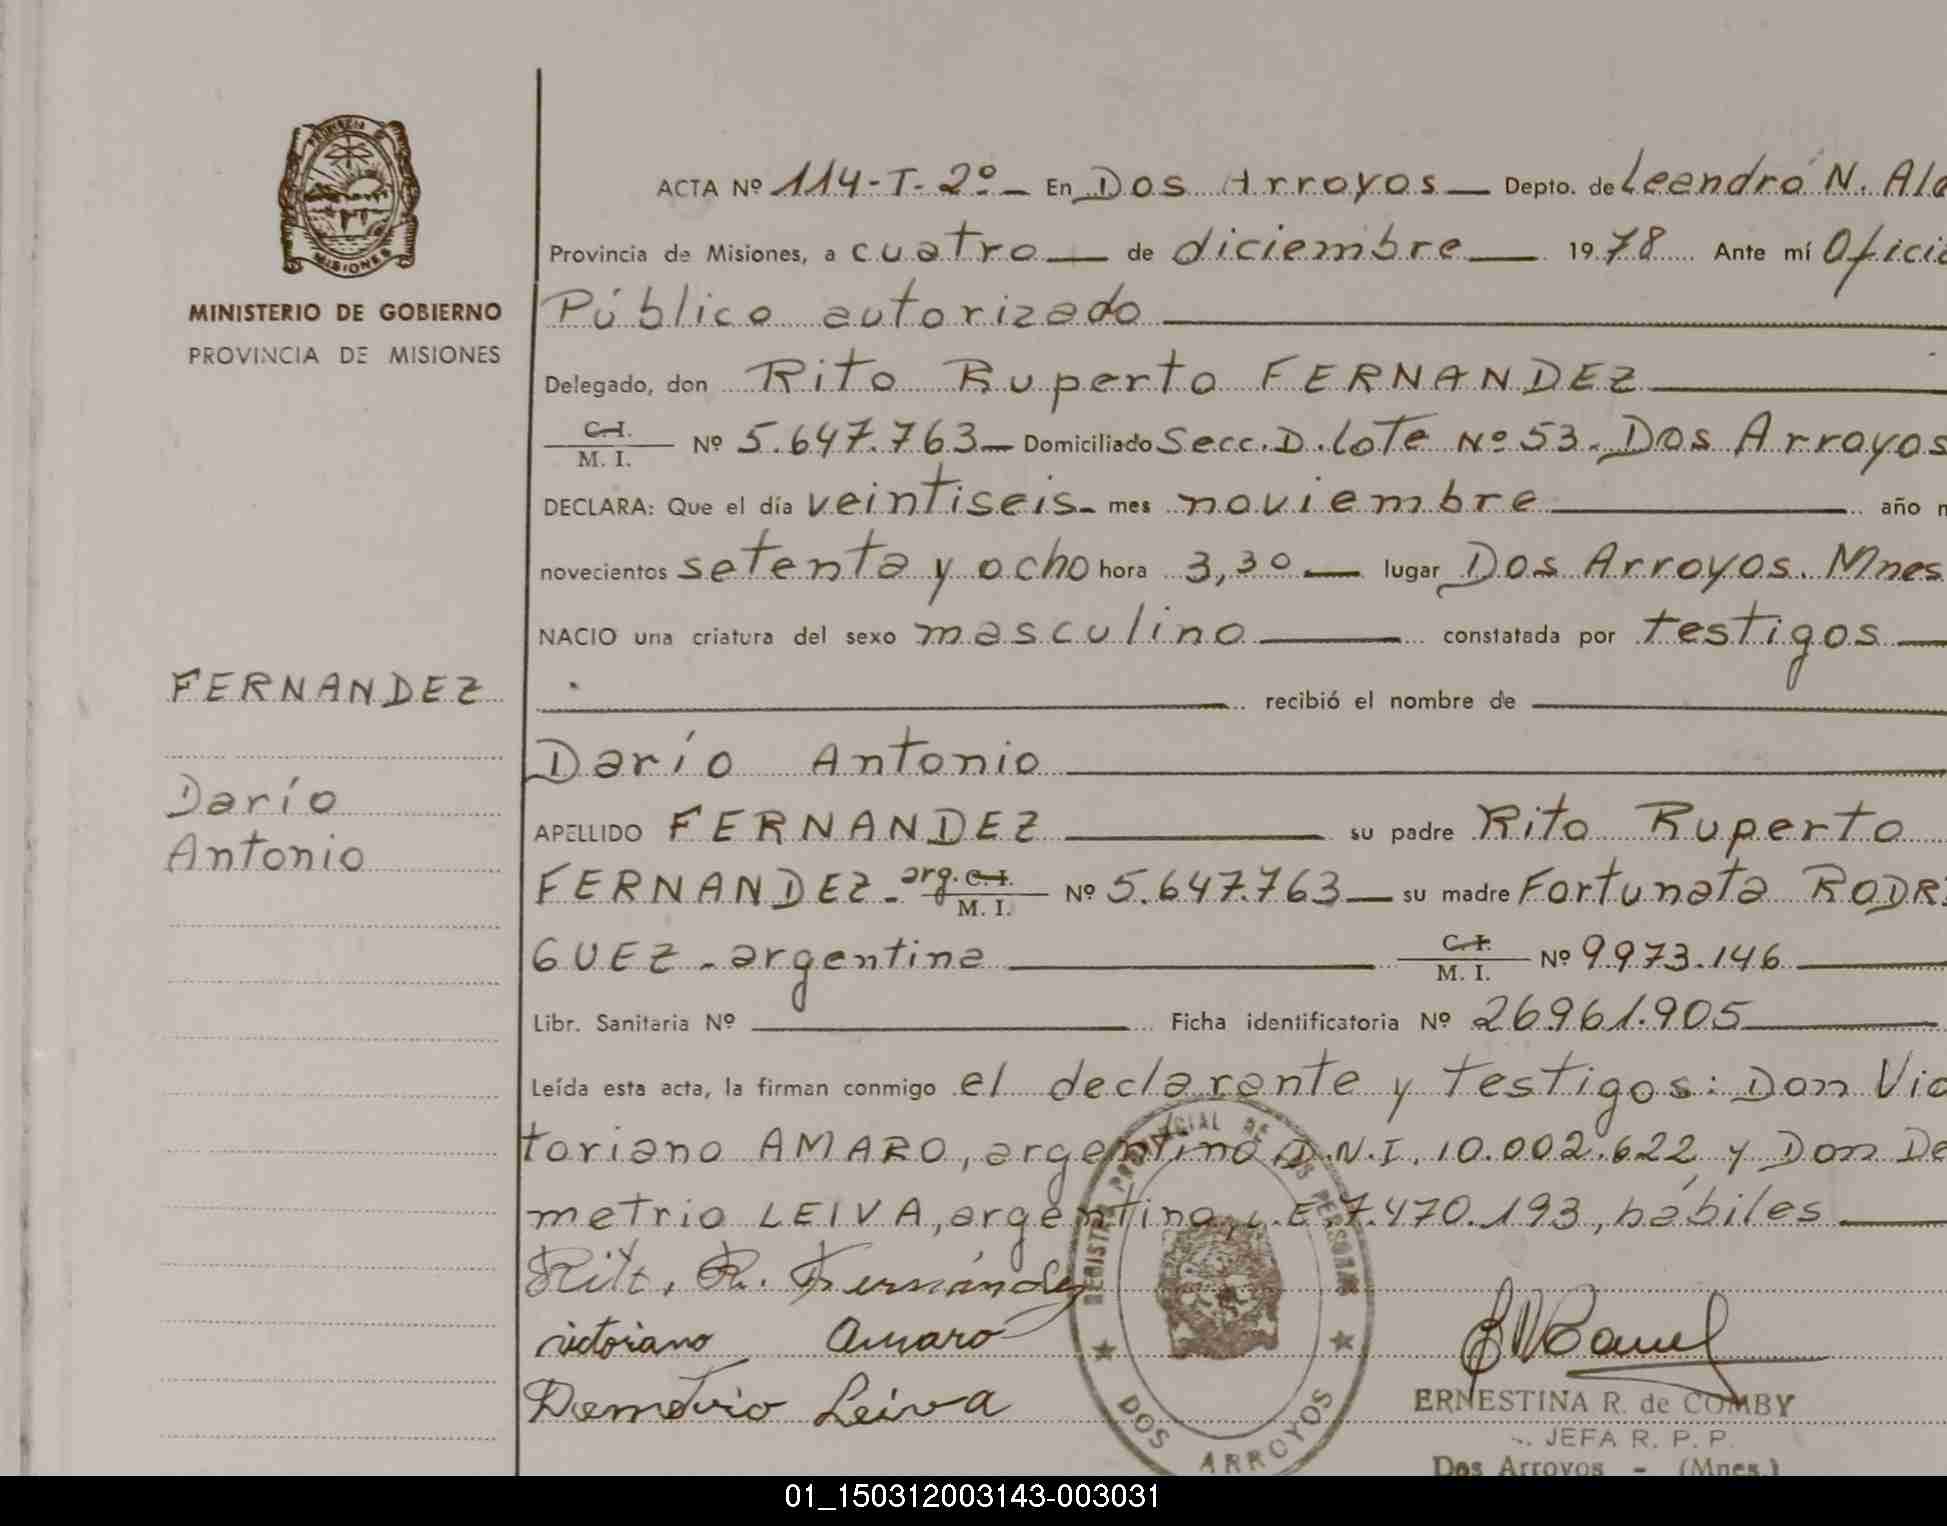 PROVINCIA DE
MISIONES
MINISTERIO DE GOBIERNO
PROVINCIA DE MISIONES
FERNANDEZ
Darío
Antonio
ACTA Nº 114-T-2º- En Dos Arroyos- Depto. de Leandro N. Ale
Provincia de Misiones, a cuatro- de diciembre- 1978 Ante mí Oficia
Público autorizado
Delegado, don Rito Ruperto FERNANDEZ
C.I.
M. I. Nº 5.647.763- Domiciliado Secc. D. Lote Nº 53. Dos Arroyos
DECLARA: Que el día veintiseis- mes noviembre año m
novecientos setenta y ocho hora 3,30- lugar Dos Arroyos. Mnes
NACIO una criatura del sexo masculino constatada por testigos
recibió el nombre de
Darío Antonio
APELLIDO FERNANDEZ su padre Rito Ruperto
FERNANDEZ- arg. C.I. M. I. Nº 5.647.763- su madre Fortunata RODRI
GUEZ- argentina C.I. M. I. Nº 9.973.146
Libr. Sanitaria Nº Ficha identificatoria Nº 26.961.905
Leída esta acta, la firman conmigo el declarante y testigos: Don Vic
toriano AMARO, argentino D.N.I. 10.002.622 y Don De
metrio LEIVA, argentino, L.E. 7.470.193, hábiles
Rito. R. Fernández
victoriano Amaro
Demetrio Leiva
REGISTRO PROVINCIAL DE LAS PERSONAS
DOS ARROYOS
ERNESTINA R. de COMBY
JEFA R. P. P.
Dos Arroyos - (Mnes.)
01_150312003143-003031